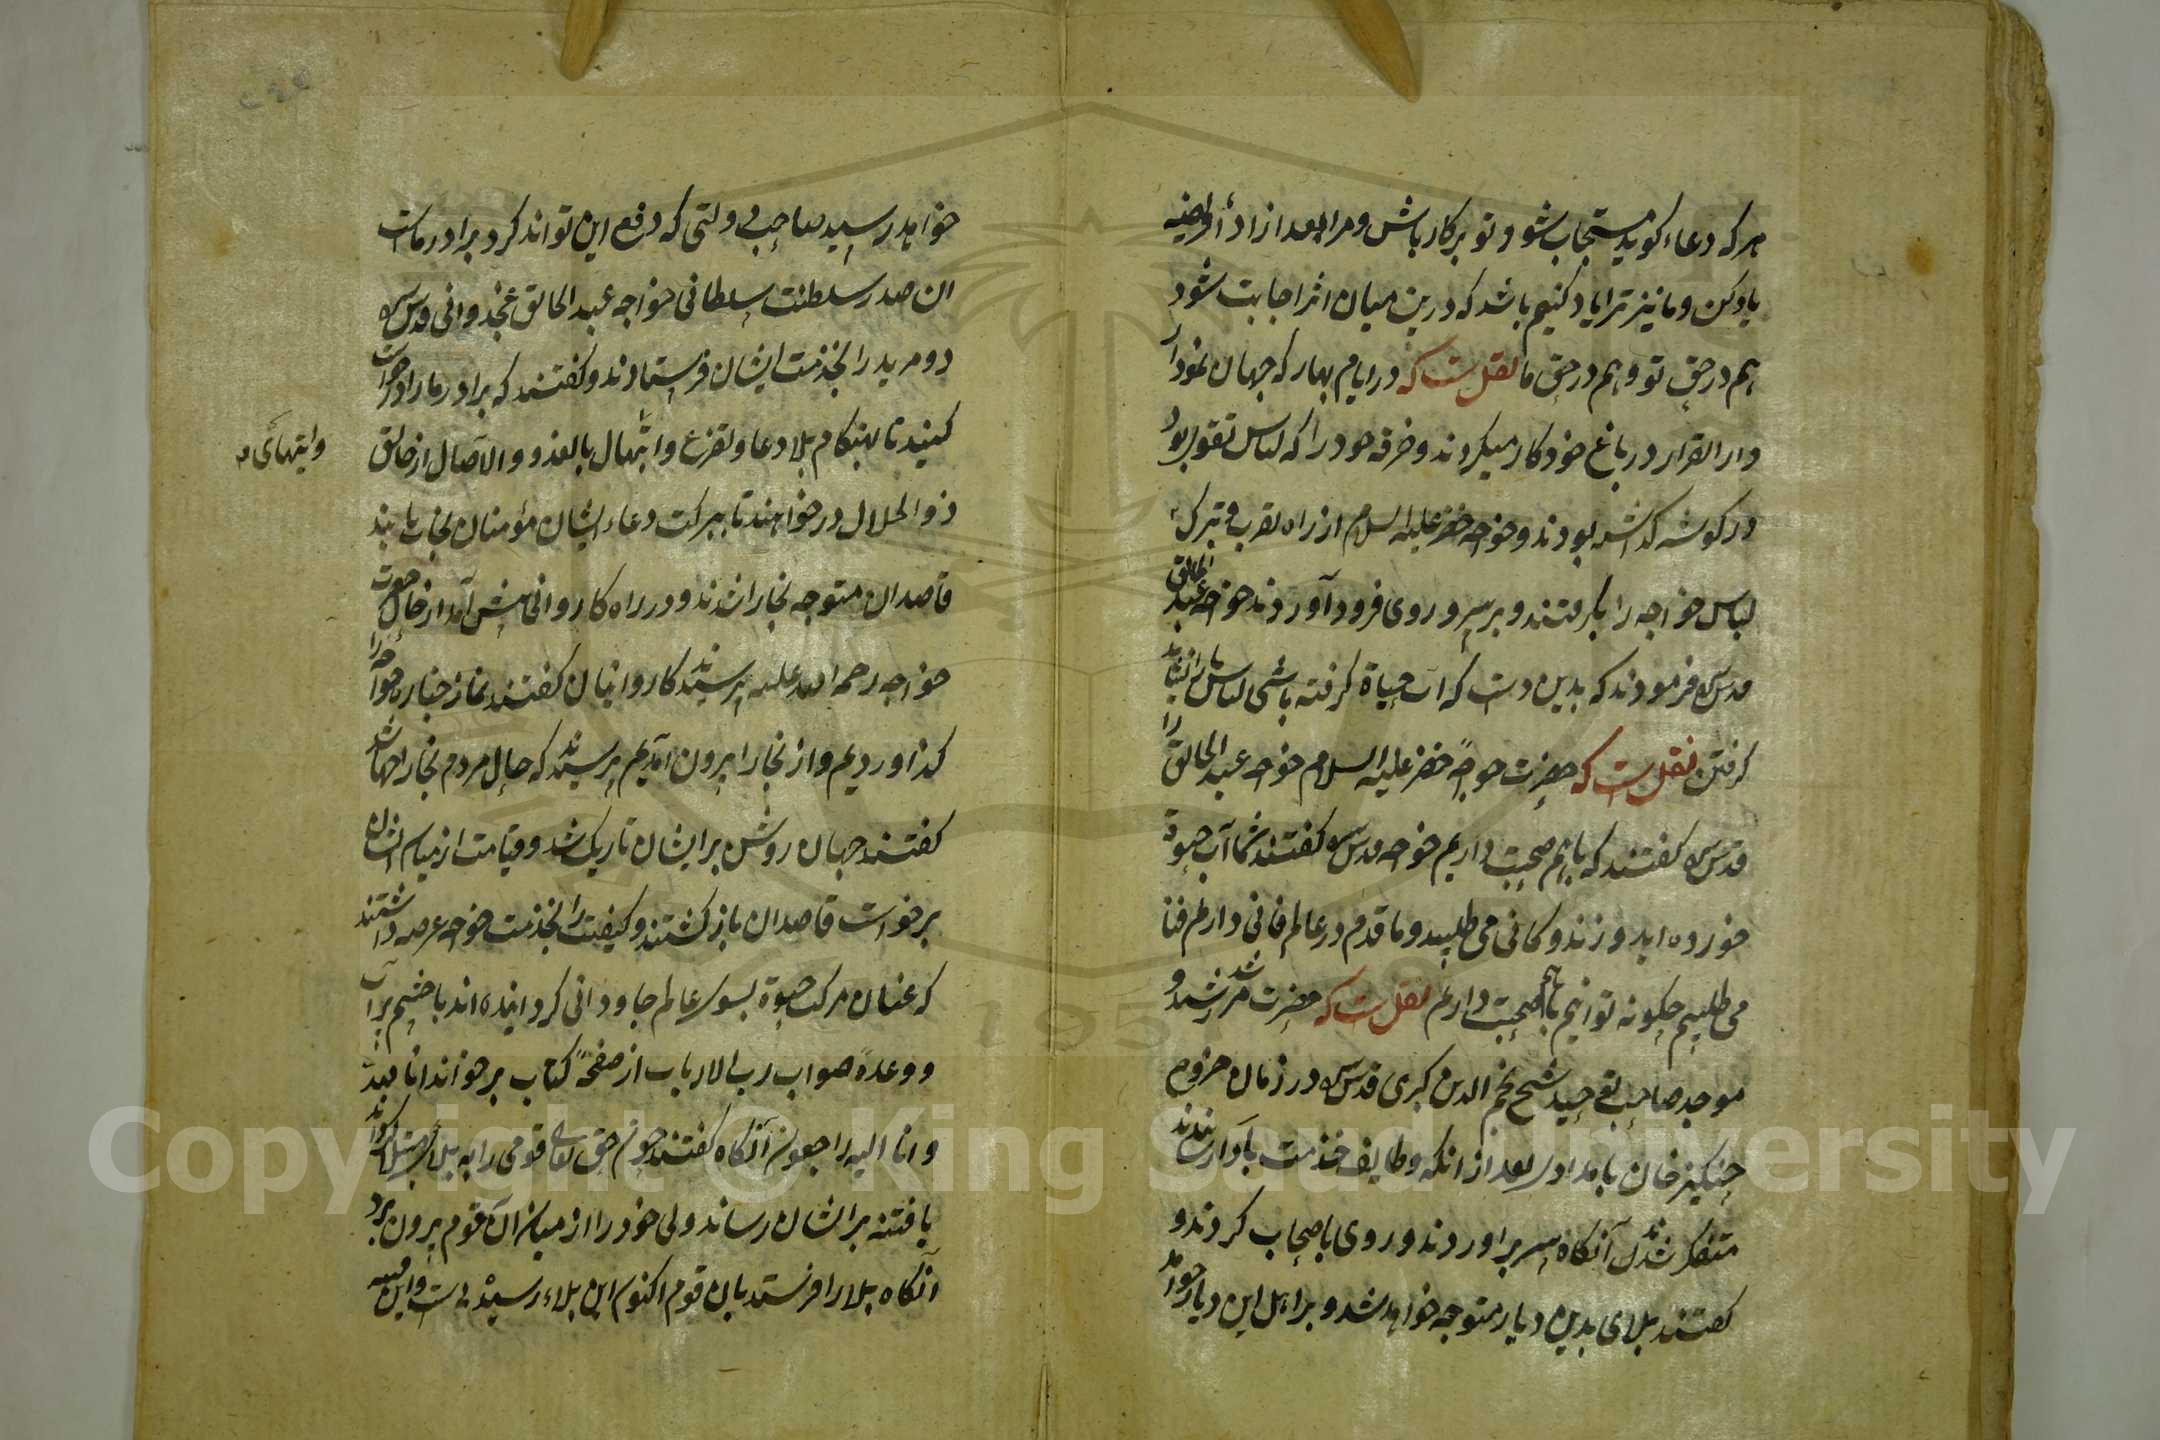 هر که دعاء کوید مستجاب شود و تو بر کار باش و مرا بعد از اداء فریضه
یاد کن و ما نیز ترا یاد کنیم باشد که درین میان اثر اجابت شود
هم در حق تو و هم در حق ما نقل است که در ایام بهار که جهان نمودار
دار القرار در باغ خود کار میکردند و خرقه خود را که لباس تقوی بود
در کوشه کذاشته بودند و خواجه خضر علیه السلام از راه تقرب و تبرک
لباس خواجه را بکرفتند و بر سر و روی فرود آوردند خواجه عبد الخالق
قدس سره فرمودند که بدین دست که آب حیاة کرفته باشی لباس ما را نباید
کرفتن نقل است که حضرت خواجه خضر علیه السلام خواجه عبد الخالق را
قدس سره کفتند که با هم صحبت داریم خواجه قدس سره کفتند شما آب حیوة
خورده اید و زندکانی می طلبید و ما قدم در عالم فانی داریم فنا
می طلبیم چکونه توانیم با هم صحبت داریم نقل است که حضرت مرشد و
موجد صاحب شیخ نجم الدین کبری قدس سره در زمان خروج
چنکیز خان بامدادی بعد از انکه وظایف خدمت باوراد رسانیدند
متفکر شدند آنکاه سر براوردند و روی باصحاب کردند و
کفتند بلای بدین دیار متوجه خواهد شد و بر اهل این دیار خواهد
خواهد رسید صاحب دولتی که دفع این تواند کرد برادر ماست
ان صدر سلطنت سلطانی خواجه عبد الخالق غجدوانی قدس سره
دو مرید را بخدمت ایشان فرستادند و کفتند که برادر ما را در خواست
کنید تا بهنکام بلا دعا و تضرع و ابتهال بالغدو و الآصال از خالق
وابتهالی
ذو الجلال در خواهند تا ببرکت دعاء ایشان مؤمنان نجات یابند
قاصدان متوجه بخارا شدند و در راه کاروانی پیش آمد از حال حضرت
خواجه رحمه الله علیه پرسیدند کاروانیان کفتند نماز جنازه خواجه را
کذاوردیم و از بخارا بیرون آمدیم پرسیدند که حال مردم بخارا چها شد
کفتند جهان روشن بر ایشان تاریک شد و قیامت از میان ایشان
برخواست قاصدان باز کشتند و کیفیت را بخدمت خواجه عرضه داشتند
که عنان مرکب حیوة بسوی عالم جاودانی کردانیده اند با چشم پر آب
و وعدهٔ صواب رب الارباب از صفحهٔ کتاب بر خواند انا لله
و انا الیه راجعون آنکاه کفتند چون حق تعالی قومی را به بلا مبتلا کند
یا فتنه بر ایشان رساند ولی خود را از میان آن قوم بیرون برد
آنکاه بلا را فرستد بان قوم اکنون این بلاء رسیدنی است و این
Copyright © King Saud University